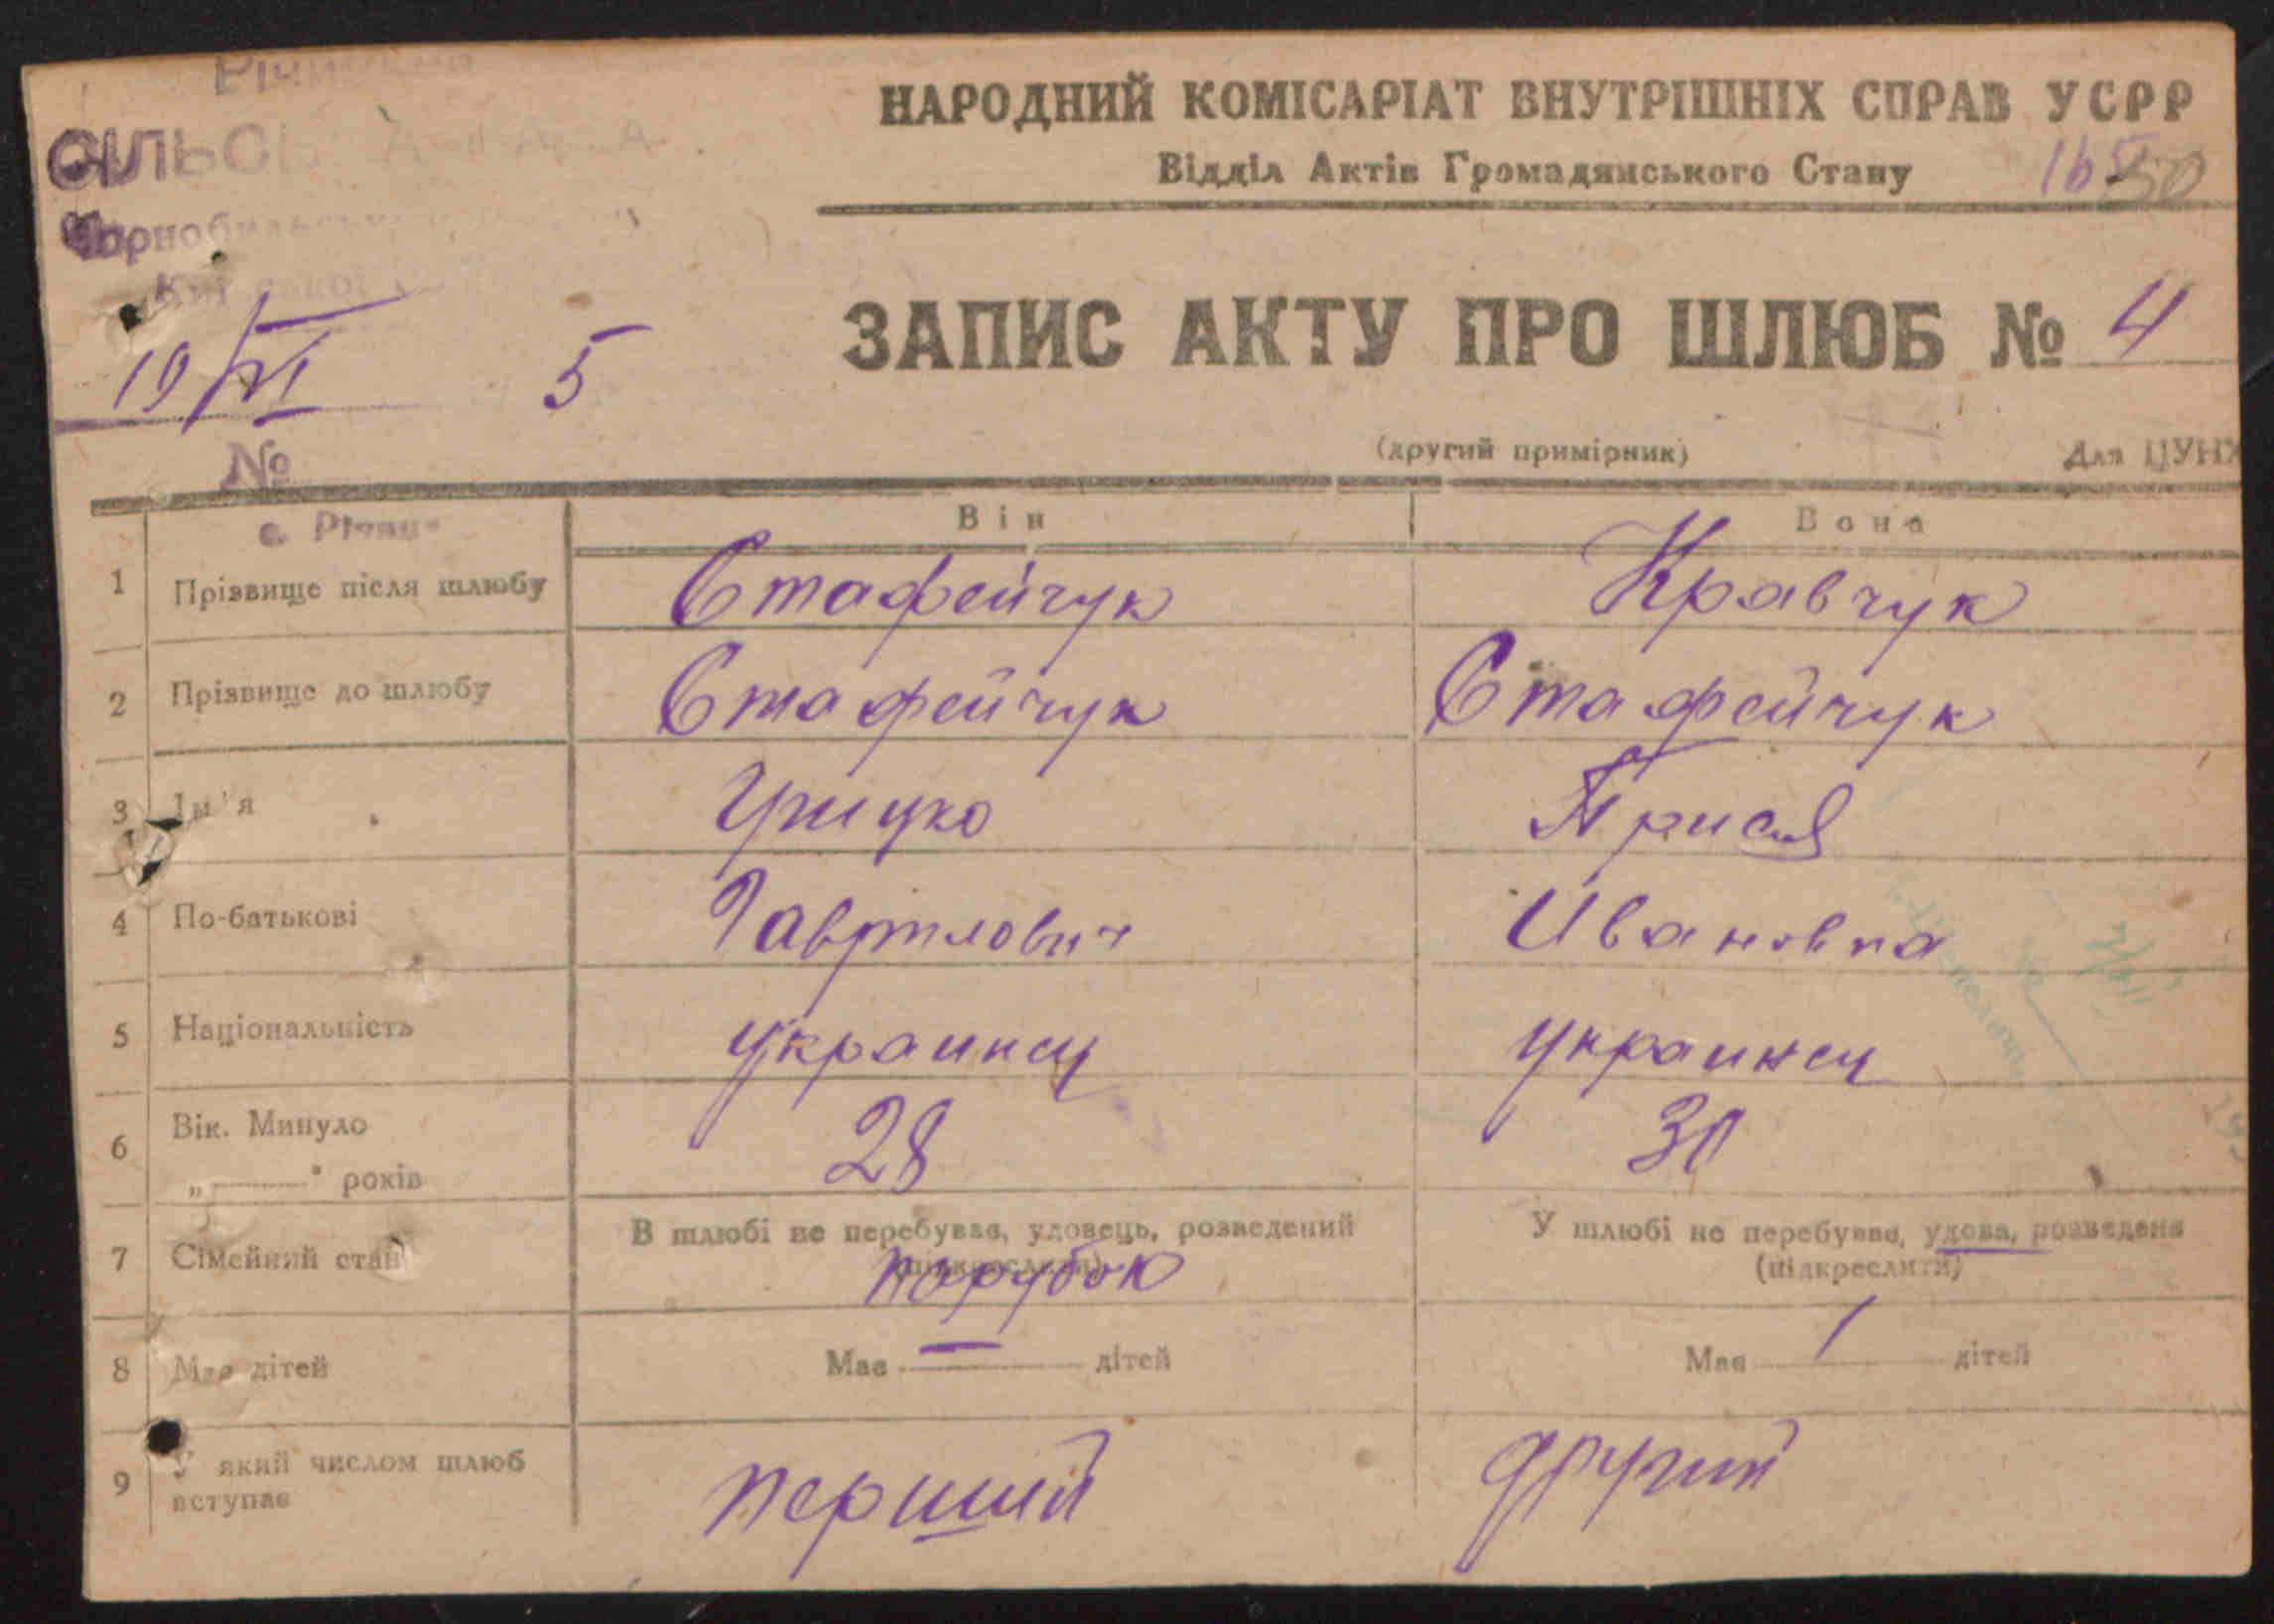 НАРОДНИЙ КОМІСАРІАТ ВНУТРІШНІХ СПРАВ УСРР
Відділ Актів Громадянського Стану
50
19/VI 5
ЗАПИС АКТУ ПРО ШЛЮБ № 4
№
(другий примірник) Для ЦУНХ
Він Вона
1 Прізвище після шлюбу Стафейчук Кравчук
2 Прізвище до шлюбу Стафейчук Стафейчук
3 Ім'я Грицко Прися
4 По-батькові Гаврилович Ивановна
5 Національність украинец украинец
6 Вік. Минуло
„———" років 28 30
7 Сімейний стан В шлюбі не перебував, удовець, розведений У шлюбі не перебувае, удова, розведена
(підкреслити) парубок (підкреслити)
8 Має дітей Має — дітей Має 1 дітей
9 У який числом шлюб
вступає перший другий